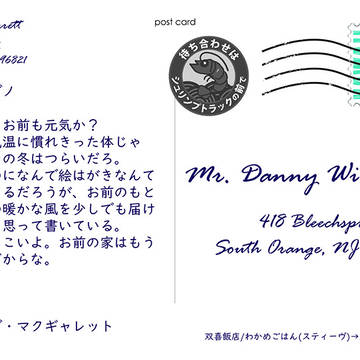 rett
96821
ノ
お前も元気か？
温に慣れきった体じゃ
の冬はつらいだろ。
になんで絵はがきなんて
るだろうが、お前のもと
暖かな風を少しでも届け
思って書いている。
こいよ。お前の家はもう
からな。
・マクギャレット
post card
待ち合わせは
シュリンプトラックの前で
Mr. Danny Wi
418 Bleechsp
South Orange, NJ
双喜飯店/わかめごはん(スティーヴ)→